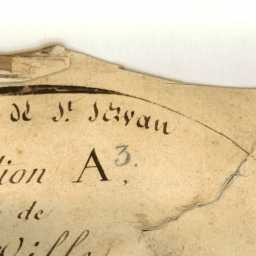 de St. Servan
tion A3.
de
Ville